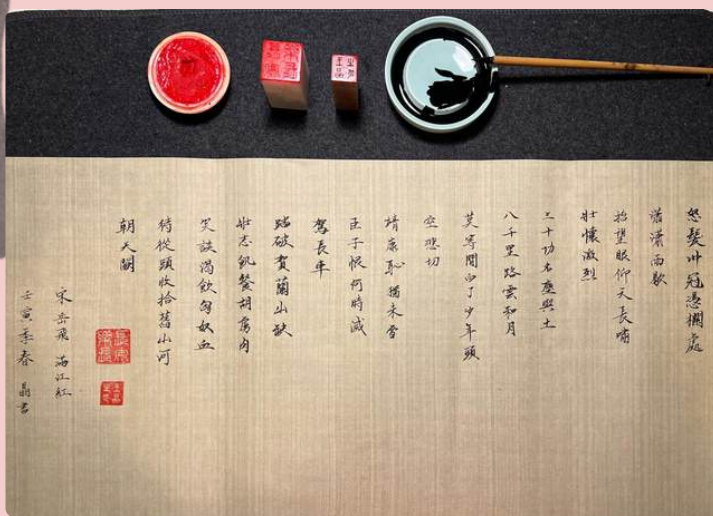 怒髮冲冠憑欄處
瀟瀟雨歇
抬望眼仰天長嘯
壯懷激烈
三十功名塵與土
八千里路雲和月
莫等閒白了少年頭
空悲切
靖康恥猶未雪
臣子恨何時滅
駕長車
踏破賀蘭山缺
壯志飢餐胡虜肉
笑談渴飲匈奴血
待從頭收拾舊山河
朝天闕
宋岳飛 滿江紅
壬寅季春 晶書